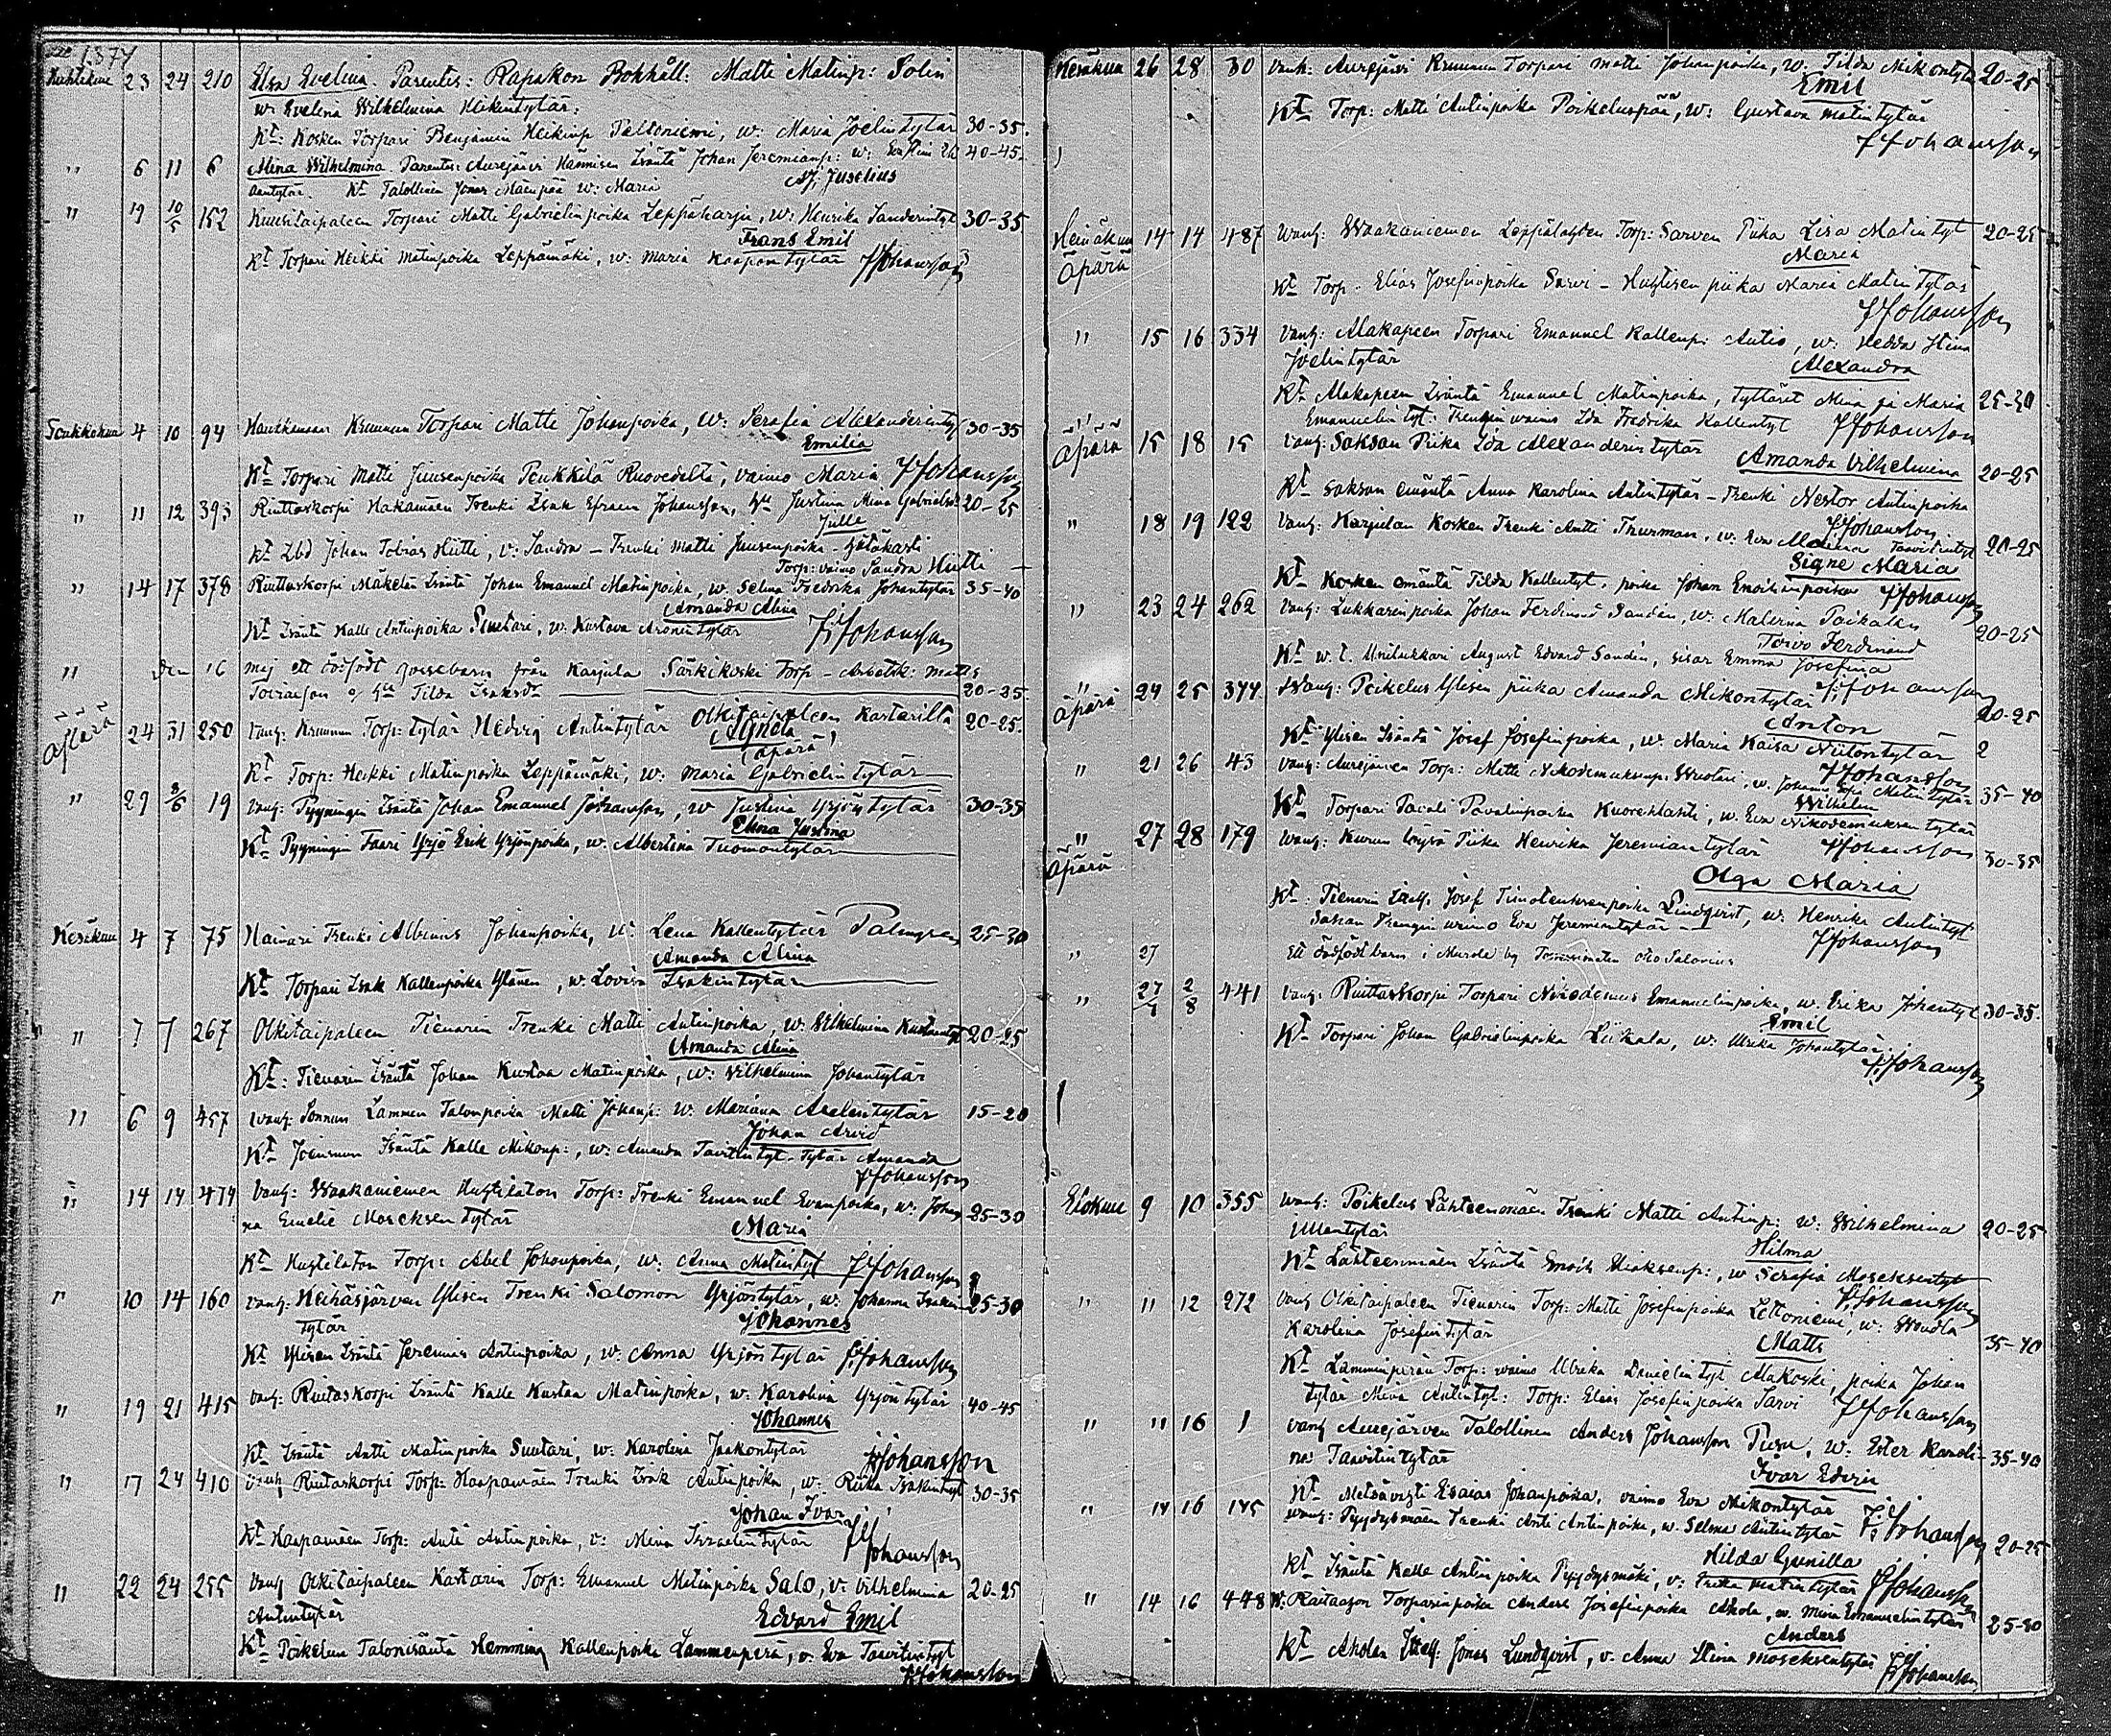 1877
Huhtikuu 23 24 210 Elsa Evelina. Parentes: Rapakon Bokhåll: Matti Matinp: Solin
w: Evelina Wilhelmina Heikintytär.
Kt: Kosken Torpari Benjamin Heikinp Peltoniemi, w: Maria Joelintytär 30-35.
" 6 11 6 Alma Wilhelmina Parentes: Aurejärvi Hannisen Isäntä Johan Jeremianp: w: 40-45
Kt Talollinen Jonas Mäenpää w: Maria Aj. Juselius
" 19 10/5 152 Kuusitaipaleen Torpari Matti Gabrielinpoika Leppäharju, w: Henrika Sanderintyt 30-35
Frans Emil
Kt Torpari Heikki Matinpoika Leppämäki, w: Maria Kaapontytär JJohansson
Toukokuu 4 10 94 Haukkamaan Kruunun Torpari Matti Johanpoika, w: Serafia Alexanderintyt 30-35
Emilia
Kt Torpari Matti Juusenpoika Penkkilä Ruovedeltä, vaimo Maria JJohansson
" 11 12 393 Riuttaskorpi Hakamäen Trenki Isak Efraim Johansson, Hu Justina Mina Gabrielsd 20-25
Julle
Kt Lbd Johan Tobias Hütti, v: Sandra - Trenki Matti Juusenpoika
Torp: vaimo Sandra Hütti
" 14 17 378 Riuttaskorpi Mäkelän Isäntä Johan Emanuel Matinpoika, w. Selma Fredrika Johantytär 35-40
Amanda Alina
Kt Isäntä Kalle Antinpoika Suutari, w: Kustava Aronintytär JJohansson
" den 16 maj ett dödfödt gossebarn från Karjula Särkikoski Torp - Arbetsk: Matts
Tobiasson o Hu Tilda Isaksdr 20-25
Äpärä 24 31 250 Vanh: Kruunun Torp: tytär Hedvig Antintytär Olkitaipaleen Kartarilla 20-25.
Agneta
(äpärä)
Kt Torp: Heikki Matinpoika Leppämäki, w: Maria Gabrielintytär
" 29 3/6 19 Vanh: Pyyningin Isäntä Johan Emanuel Johansson, w Justina Yrjöntytär 30-35
Elina Justina
Kt Pyyningin Faari Yrjö Erik Yrjönpoika, w. Albertina Tuomontytär
Kesäkuu 4 7 75 Hainari Trenki Albinus Johanpoika, w: Lena Kallentytär Palmgren 25-30
Amanda Alina
Kt Torpari Isak Kallenpoika Ylänen, w. Lovisa Isakintytär
" 7 7 267 Olkitaipaleen Tienarin Trenki Matti Antinpoika, w: Wilhelmina Kustaantyt 20-25
Amanda Alina
Kt: Tienarin Isäntä Johan Kustaa Matinpoika, w: Wilhelmina Johantytär
" 6 9 457 Vanh: Ponnun Lammen Talonpoika Matti Johanp: w: Mariana Axelintytär 15-20
Johan Arvid
Kt Isäntä Kalle Mikonp:, w: Amanda Tavitintyt - Tytär Amanda
JJohansson
" 14 14 474 Vanh: Waakaniemen Huhtilaton Torp: Trenki Emanuel Evanpoika, w: Johan
na Emelie Mooseksentytär 25-30
Maria
Kt Huhtilaton Torp: Abel Johanpoika, w: Anna Matintyt JJohansson
" 10 14 160 Vanh: Heinäsjärven Ylisen Trenki Salomon Yrjöntytär, w: Johanna Isakin 25-30
tytär
Johannes
Kt Ylisen Isäntä Jeremias Antinpoika, w: Anna Yrjöntytär JJohansson
" 19 21 415 Vanh: Riutaskorpi Isäntä Kalle Kustaa Matinpoika, w. Karolina Yrjöntytär 40-45
Johannes
Kt Isäntä Antti Matinpoika Suutari, w: Karolina Jaakontytär JJohansson
" 17 24 410 Vanh Riutaskorpi Torp: Haapamäen Trenki Isak Antinpoika, w: Riika Isakintyt 30-35
Johan Ivar
Kt Haapamäen Torp: Anti Antinpoika, v: Mina Israelintytär JJohansson
" 22 24 255 Vanh Olkitaipaleen Kartarin Torp: Emanuel Matinpoika Salo, v. Vilhelmina 20-25
Antintytär
Edvard Emil
Kt Poikelus Talonisäntä Hemming Kallenpoika Lammenperä, v. Eva Taavitintyt
JJohansson
Kesäkuu 26 28 30 Vanh: Aurejärvi Kruunun Torpari Matti Johanpoika, w: Tilda Mikontytär 20-25
Emil
Kt Torp: Matti Antinpoika Poikeluspää, w: Gustava Matintytär
JJohansson
Heinäkuu 14 14 487 Vanh: Waakaniemen Leppälahden Torp: Sarven Piika Lisa Matintyt 20-25
Äpärä
Maria
Kt Torp - Elias Josefinpoika Sarvi - Huhtisen piika Maria Matintytär
JJohansson
" 15 16 334 Vanh: Alakapeen Torpari Emanuel Kallenp: Autio, w: Hedda Stina
Joelintytär
Alexandra
Kt Alakapeen Isäntä Emanuel Matinpoika, Tyttäret Mina ja Maria 25-30
Emanuelin tyt: Trengin vaimo Ida Fredrika Kallentyt JJohansson
" Äpärä 15 18 15 Vanh: Saksan Piika Ida Alexanderintytär
Amanda Vilhelmina 20-25
Kt Saksan emäntä Anna Karolina Antintytär - Trenki Nestor Antinpoika
JJohansson
" 18 19 122 Vanh: Karjulan Kosken Trenki Antti Thurman, w: Eva Taavitintyt 20-25
Signe Maria
Kt Kosken emäntä Tilda Kallentyt. poika Johan JJohansson
" 23 24 262 Vanh: Lukkarinpoika Johan Ferdinand Sandén, w: Malerina Poikalen 20-25
Toivo Ferdinand
Kt w. t. Unilukkari August Edvard Sandén, sisar Emma Josefina
JJohansson
" äpärä 24 25 374 Vanh: Poikelus Ylisen piika Amanda Mikontytär 20-25
Anton
Kt Ylisen Isäntä Josef Josefinpoika, w. Maria Kaisa Niilontytär 2
JJohansson
" 21 26 43 Vanh: Aurejärven Torp: Matti Nikodemuksenp: Wuotari, w. Johanna Matintytär 35-40
Wilhelm
Kt Torpari Paavali Paavalinpoika Kuorehlahti, w. Eva Nikodemuksen tytär
JJohansson
" Äpärä 27 28 179 Vanh: Kurun Piika Henrika Jeremiantytär 30-35
Olga Maria
Kt: Tienarin Itsell. Josef Timoteuksenpoika Lindqvist, w: Henrika Antintyt
Sahan Trengin vaimo Eva Jeremiantytär JJohansson
" 27 Ett dödfödt barn i Murole by
" 27/7 2/8 441 Vanh: Riuttaskorpi Torpari Nikodemus Emanuelinpoika, w. Erika Johantyt 30-35.
Emil
Kt Torpari Johan Gabrielinpoika Liikala, w: Ulrika Johantytär
JJohansson
Elokuu 9 10 355 Vanh: Poikelus Lähteenmäen Trenki Matti Antinp: w: Wilhelmina 20-25
Ullantytär
Hilma
Kt Lähteenmäen Isäntä Enok Hiskiaenp:, w Serafia Mooseksentyt
JJohansson
" 11 12 272 Vanh Olkitaipaleen Tienarin Torp: Matti Josefinpoika Lettoniemi, w: Wendla
Karolina Josefintytär 35-40
Matts
Kt Lamminperän Torp: vaimo Ulrika Danielintyt Alakoski, poika Johan
tytär Mina Antintyt: Torp: Elias Josefinpoika Sarvi JJohansson
" 11 16 1 Vanh Aurejärven Talollinen Anders Johansson Pusu, w. Ester Karoli-
na Taavitintytär 35-40
Ivar Edvin
Kt Metsävahti Esaias Johanpoika, vaimo Eva Mikontytär JJohansson
" 14 16 145 Vanh: Pyydysmäen Trenki Anti Antinpoika, w. Selma Antintytär 20-25
Hilda Gunilla
Kt Isäntä Kalle Antinpoika Pyydysmäki, v: Matintytär JJohansson
" 14 16 448 V: Raitaajon Torparinpoika Anders Josefinpoika Ahola, w. Mina Emanuelintytär 25-30
Anders
Kt Aholan Itsell: Jonas Lundqvist, v. Anna Stina Mooseksentytär JJohansson